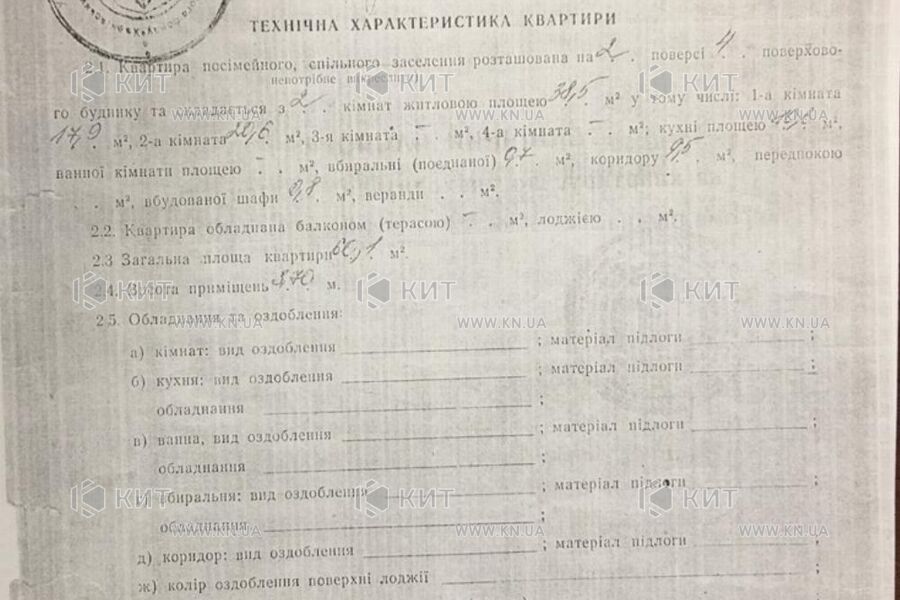 ТЕХНІЧНА ХАРАКТЕРИСТИКА КВАРТИРИ
2.1. Квартира посімейного, спільного заселення розташована на 2 . поверсі 4 . поверхово-
непотрібне викреслити)
го будинку та складається з 2 . . кімнат житловою площею 38,5 . м² у тому числі: 1-а кімната
17,9 м², 2-а кімната 20,6 . м², 3-я кімната – . м², 4-а кімната – . м²; кухні площею м²,
ванної кімнати площею – . . м², вбиральні (поєднаної) 0,7 . м², коридору 9,5 . м², передпокою
. . м², вбудованої шафи 0,8 . м², веранди . . м².
2.2. Квартира обладнана балконом (терасою) – . м², лоджією . . м².
2.3 Загальна площа квартири 60,1 м².
2.4. Висота приміщень 3.70 м.
2.5. Обладнання та оздоблення:
а) кімнат: вид оздоблення ; матеріал підлоги ;
б) кухня: вид оздоблення ; матеріал підлоги ;
обладнання ;
в) ванна, вид оздоблення ; матеріал підлоги ;
обладнання ;
вбиральня: вид оздоблення ; матеріал підлоги ;
обладнання ;
д) коридор: вид оздоблення ; матеріал підлоги ;
ж) колір оздоблення поверхні лоджії ;
КИТ КИТ КИТ
WWW.KN.UA WWW.KN.UA WWW.KN.UA
КИТ КИТ КИТ
WWW.KN.UA WWW.KN.UA WWW.KN.UA
КИТ КИТ КИТ
WWW.KN.UA WWW.KN.UA WWW.KN.UA